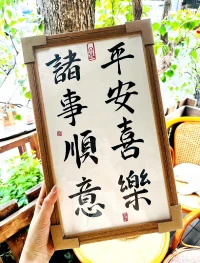 平安喜樂
諸事順意